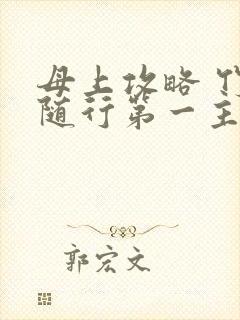 母上攻略
随行第一主
郭宏文